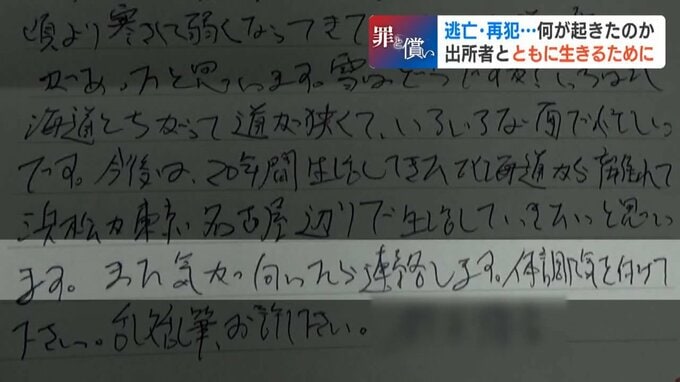 罪と償い
逃亡・再犯…何が起きたのか
出所者とともに生きるために
頃より寒さで弱くなってきて
かあったと思います。雪は
海道とちがって道が狭くて、いろいろな面で忙しい
です。今後は、20年間生活してきた北海道から離れて
浜松か東京、名古屋辺りで生活していきたいと思い
ます。また気が向いたら連絡します。体調に気を付けて
下さい。乱筆、お許し下さい。